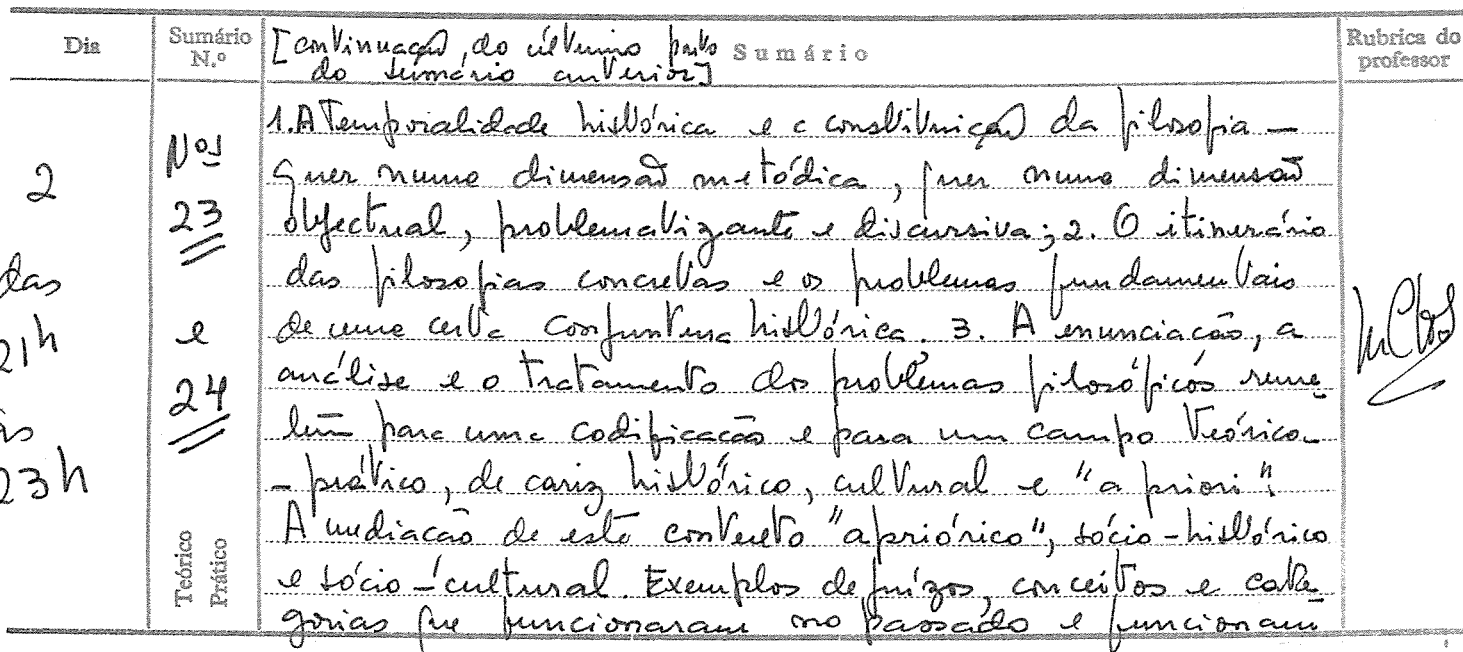 Dia
Sumário N.º
[continuação do último ponto
do sumário anterior]
Sumário
Rubrica do
professor
2
das
21h
às
23h
Nos
23
e
24
Teórico
Prático
1. A Temporalidade histórica e a constituição da filosofia —
quer numa dimensão metódica, quer numa dimensão
objectual, problematizante e discursiva; 2. O itinerário
das filosofias concretas e os problemas fundamentais
de uma certa conjuntura histórica. 3. A enunciação, a
análise e o tratamento dos problemas filosóficos reme-
tem para uma codificação e para um campo teórico-
-prático, de cariz histórico, cultural e "a priori".
A mediação de este contexto "apriórico", sócio-histórico
e sócio-cultural. Exemplos de juízos, conceitos e cate
gorias que funcionaram no passado e funcionam